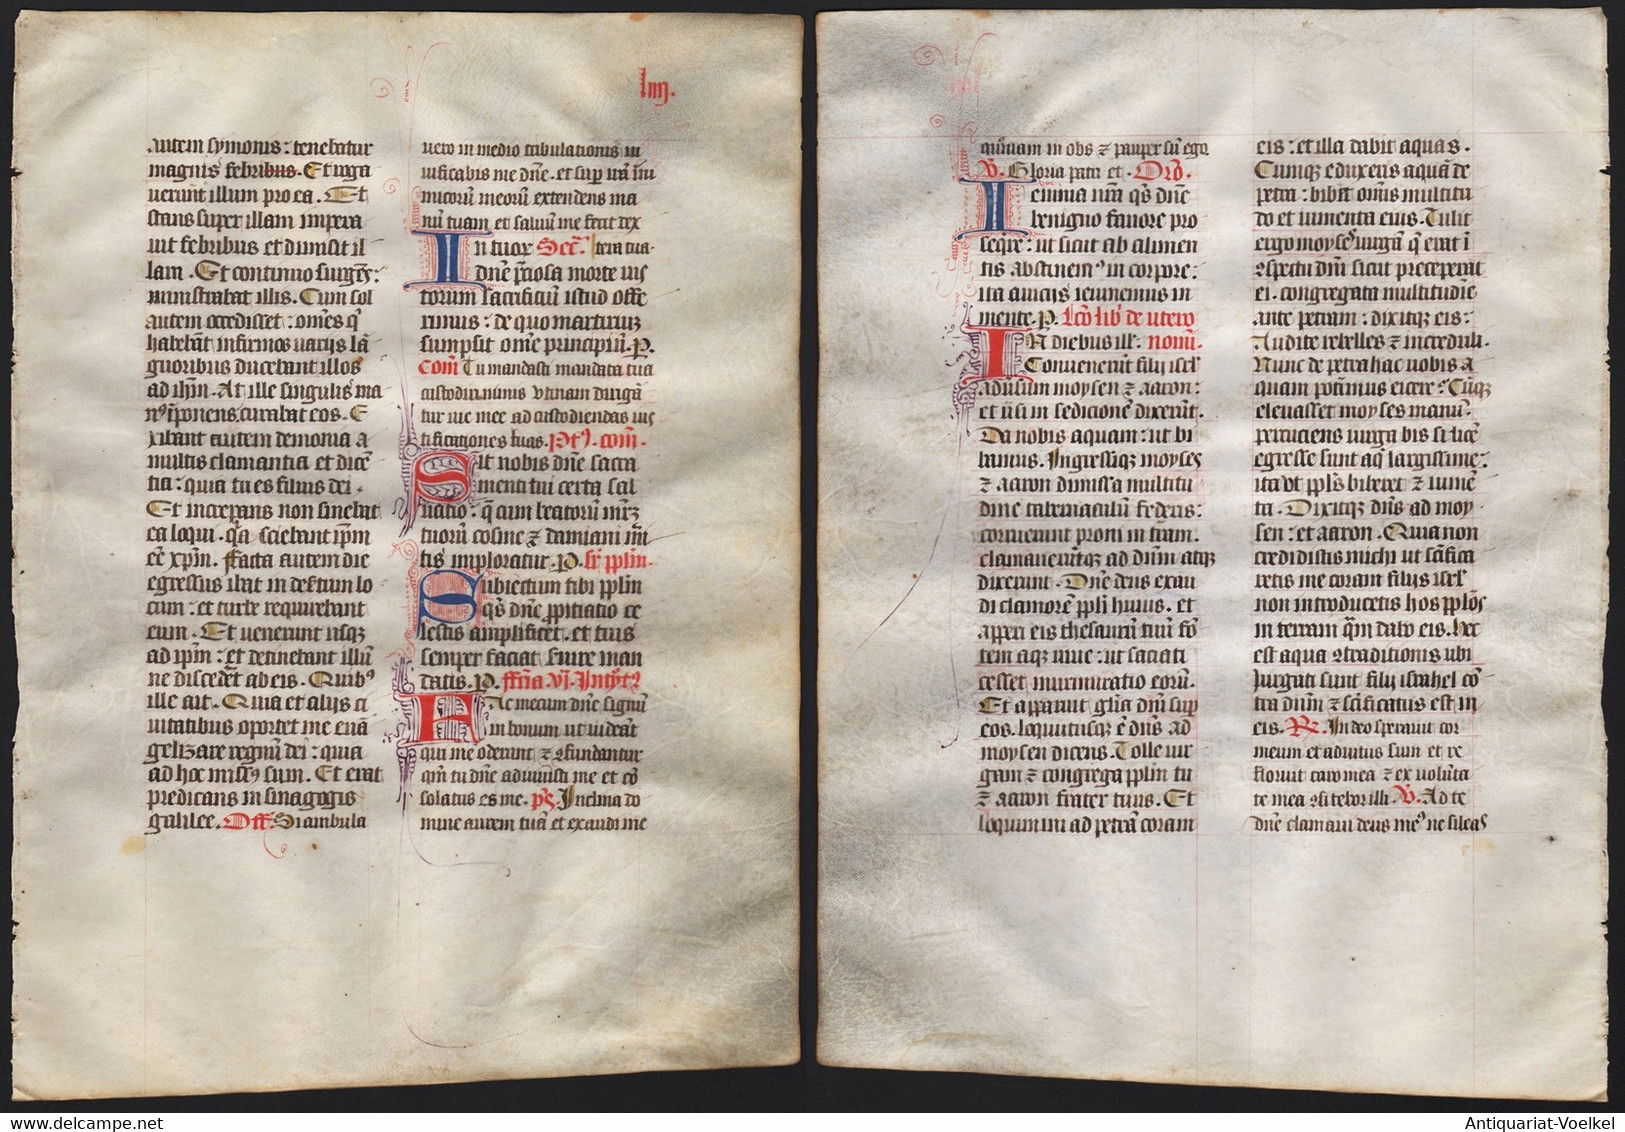 liiij.
autem symonis: tenebatur
magnis febribus. Et roga
verunt illum pro ea. Et
stans super illam impera
vit febribus et dimisit il
lam. Et continuo surgēs:
ministrabat illis. Cum sol
autem occidisset: om̄es q̇
habebāt infirmos varijs lā
guoribus ducebant illos
ad ih̄m. At ille singulis ma
nꝰ īponens, curabat eos. E
xibant autem demonia a
multis clamantia et dicē
tia: quia tu es filius dei.
Et increpans non sinebat
ea loqui. q̇a sciebant ip̄m
eē xp̄m. Facta autem die
egressus ibat in desertum lo
cum: et turbe requirebant
eum. Et venerunt usqꝫ
ad ip̄m: et detinebant illū
ne discedēt ab eis. Quibꝰ
ille ait. Quia et alijs ci
vitatibus oportet me evā
gelizare regnū dei: quia
ad hoc missꝰ sum. Et erat
predicans in sinagogis
galilee. Off. Si ambula
vero in medio tribulationis vi
vificabis me dn̄e. et sup̄ irā ini
micorū meorū extendens ma
nū tuam et salvū me fecit dex
In tuor Secr̄. tera tua.
dn̄e p̄ciosa morte ius
torum sacrificiū istud offe
rimus: de quo martirium
sumpsit om̄e principiū. P.
Com̄ Tu mandasti mandata tua
custodiri nimis Utinam dirigā
tur vie mee ad custodiendas ius
tificationes tuas. Ptꝰ. com̄.
Sit nobis dn̄e sacra
menti tui certa sal
vatio: q̄ cum beatorū mr̄ꝫ
tuorū cosme ⁊ damiani m̄i
tis imploratur. P. sr̄ pplm̄.
Subiectum tibi pplm̄
qs̄ dn̄e p̄pitiatio ce
lestis amplificet. et tuis
semper faciat servire man
datis. P. Ffr̄ia vj. Intꝰt
Fac mecum dn̄e signū
in bonum ut videāt
qui me oderunt ⁊ ꝯfundantur
qm̄ tu dn̄e adiuvisti me et cō
solatus es me. ps̄. Inclina do
mine aurem tuā et exaudi me
qm̄ inops ⁊ pauper sū ego
V. Gloria patri et. Orō.
Ieiunia nr̄a qs̄ dn̄e
benigno favore pro
seq̄re: ut sicut ab alimen
tis abstinemꝰ in corpore:
ita a vicijs ieiunemus in
mente. P. Lc̄o lib̄ de utero
In diebus ill: nom̄.
Convenerūt filij isrl̄
adv̄sum moysen ⁊ aaron:
et v̄si in sedicionē dixerūt.
Da nobis aquam: ut bi
bamus. Ingressusqꝫ moyses
⁊ aaron dimissa multitu
dine tabernaculū federis:
corruerunt proni in terram.
clamaverūtqꝫ ad dn̄m atqꝫ
dixerunt. Dn̄e deus exau
di clamorē ppl̄i huius. et
apperi eis thesaurū tuū fō
tem aqꝫ vive: ut saciati
cesset murmuratio eorū.
Et apparuit gl̄ia dn̄i sup
eos. locutusqꝫ ē dn̄s ad
moysen dicens. Tolle vir
gam ⁊ congrega pplm̄ tu
⁊ aaron frater tuus. Et
loquimini ad petrā coram
eis: et illa dabit aquas.
Cumqꝫ eduxeris aquā de
petra: bibāt om̄is multitu
do et iumenta eius. Tulit
ergo moyses virgā q̄ erat ī
ꝯspectu dn̄i sicut preceperat
ei. congregata multitudīe
ante petram: dixitqꝫ eis:
Audite rebelles ⁊ increduli.
Nunc de petra hac vobis a
quam potim̄us eicere: Cūqꝫ
elevasset moyses manū.
percuciens virga bis silicē
egresse sunt aq̄ largissime:
ita ut ppl̄s biberet ⁊ iumē
ta. Dixitqꝫ dn̄s ad moy
sen: et aaron. Quia non
credidistis michi ut sc̄ifica
retis me coram filijs isrl̄
non introducetis hos ppl̄os
in terram qm̄ dabo eis. hec
est aqua ꝯtraditionis ubi
iurgati sunt filij israhel cō
tra dn̄m ⁊ sc̄ificatus est in
eis. R. In deo speravit cor
meum et adiutus sum et re
floruit caro mea ⁊ ex volūta
te mea ꝯfitebor illi. V. Ad te
dn̄e clamavi deus meꝰ ne sileas
Antiquariat-Voelkel